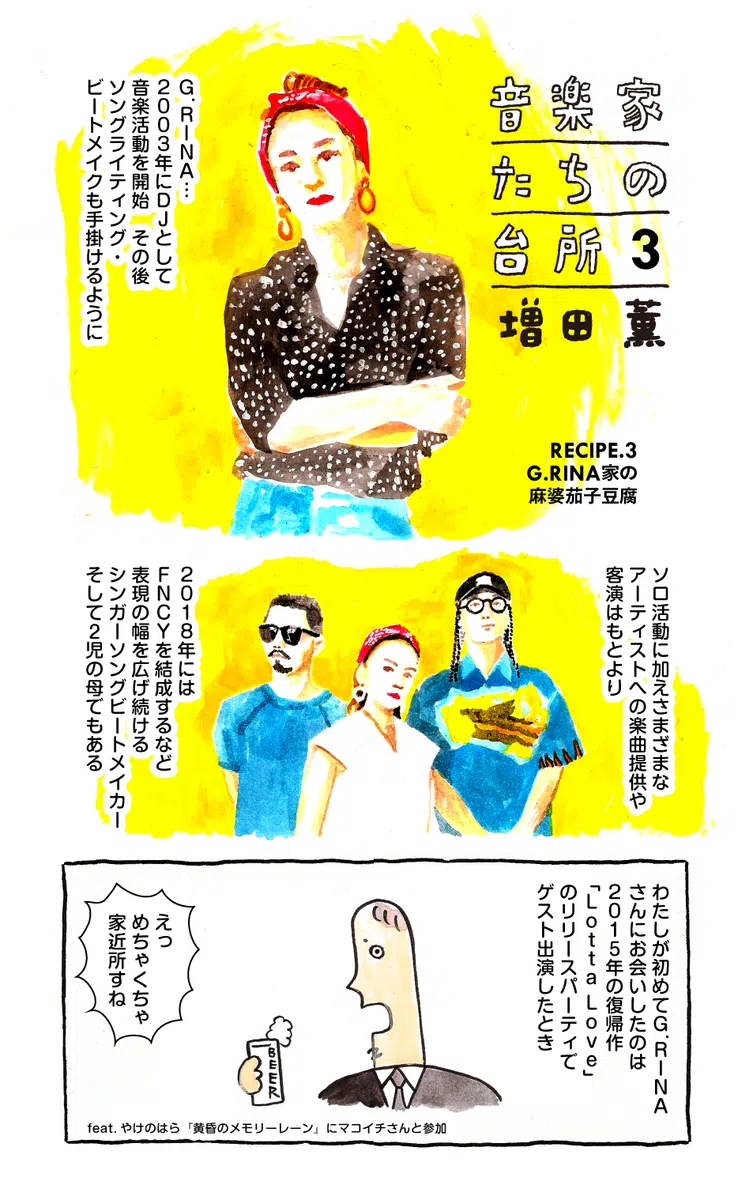 音楽家
たちの
台所3
増田薫
RECIPE.3
G.RINA家の
麻婆茄子豆腐
G.RINA…
2003年にDJとして
音楽活動を開始 その後
ソングライティング・
ビートメイクも手掛けるように
ソロ活動に加えさまざまな
アーティストへの楽曲提供や
客演はもとより
2018年には
FNCYを結成するなど
表現の幅を広げ続ける
シンガーソングビートメイカー
そして2児の母でもある
わたしが初めてG.RINA
さんにお会いしたのは
2015年の復帰作
「Lotta Love」
のリリースパーティで
ゲスト出演したとき
BEER
えっ
めちゃくちゃ
家近所すね
feat. やけのはら『黄昏のメモリーレーン』にマコイチさんと参加